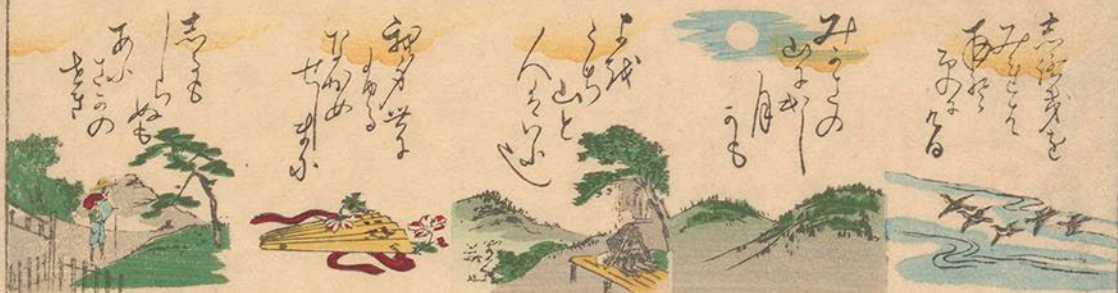 しろきを
みれは
夜そ
更に
ける
みかさの
山に出し
月
かも
よを
うち
山と
人はいふ也
我身世に
ふる
なかめ
せしまに
しるも
しらぬも
あふさかの
せき